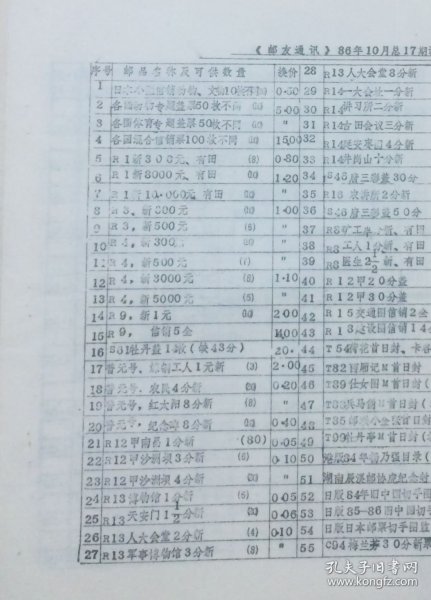 《邮友通讯》86年10月总17期
序号 邮品名称及可供数量 换价
1 日本小型信销动物、文物10枚不同 0.50
2 各国动物专题盖票50枚不同 5.00
3 各国体育专题盖票50枚不同 "
4 各国混合信销票100枚不同 15.00
5 R1新300元、有田 (8) 0.80
6 R1新3000元、有田 1.20
7 R1新10.000元、有田 "
8 R3、新800元 1.00
9 R3、新500元 (6) "
10 R4、新300元 "
11 R4、新500元 (7) "
12 R4、新3000元 (8) 1.10
13 R4、新5000元 (5) "
14 R9、新1元 2.00
15 R9、信销5全
16 S61牡丹盖1—15枚(缺43分) 20.
17 普无号，信销工人1元新 (3) 2.00
18 普无号，农民4分新 0.20
19 普无号，红太阳8分新 "
20 普无号，纪念碑8分新 "
21 R12甲南昌1分新 (80) 0.05
22 R12甲沙洲坝3分新 0.10
23 R12甲沙洲坝4分新 "
24 R13博物馆1分新 0.05
25 R13天安门1½分新 0.06
26 R13人大会堂2分新 (4) 0.10
27 R13军事博物馆3分新 (8) "
28 R13人大会堂3分新
29 R14一大会址一分新
30 R14讲习所二分新
31 R14古田会议三分新
32 R14延安枣园4分新
33 R14井岗山十分新
34 S46唐三彩盖30分
35 R18农讲所2分新
36 S46唐三彩盖50分
37 R8矿工
38 R8工人1分新、有田
39 R8医生2½新、有田
40 R12甲20分盖
41 R12甲30分盖
42 R15交通图信销2全
43 R13建设图信销14
44 T54荷花首日封、卡
45 T82西厢记M首日封
46 T89仕女图M首日封
47 T88兵马俑M首日封
48 T85邮票小全张首日封
49 T99牡丹亭M首日封
50 港版84年
51 湖南辰溪邮协成立纪念封
52 日版84年旧中国切手图
53 日版85—86旧中国切手
54 日版日本邮票切手图鉴
55 C94梅兰芳30分新票